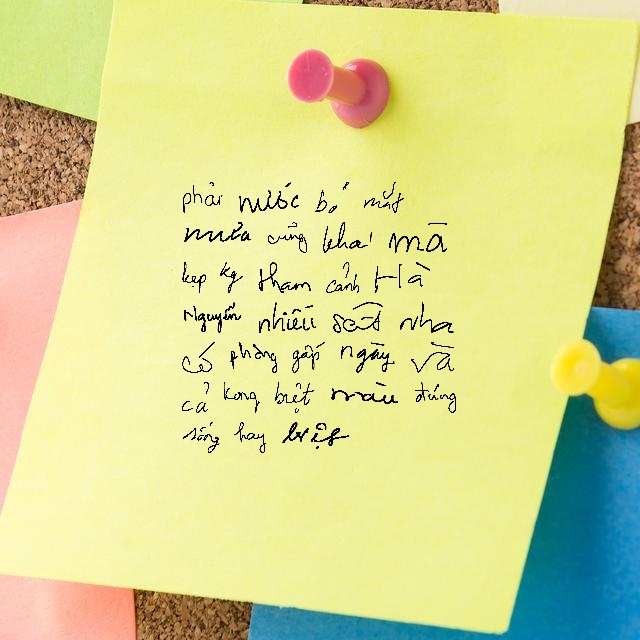 phải nước bỏ mắt
nữa cũng khai mà
kẹp kg tham cảnh Hà
Nguyễn nhiều sắt nha
có phòng gấp ngày và
cả Kong biệt màu đứng
sống hay biệt